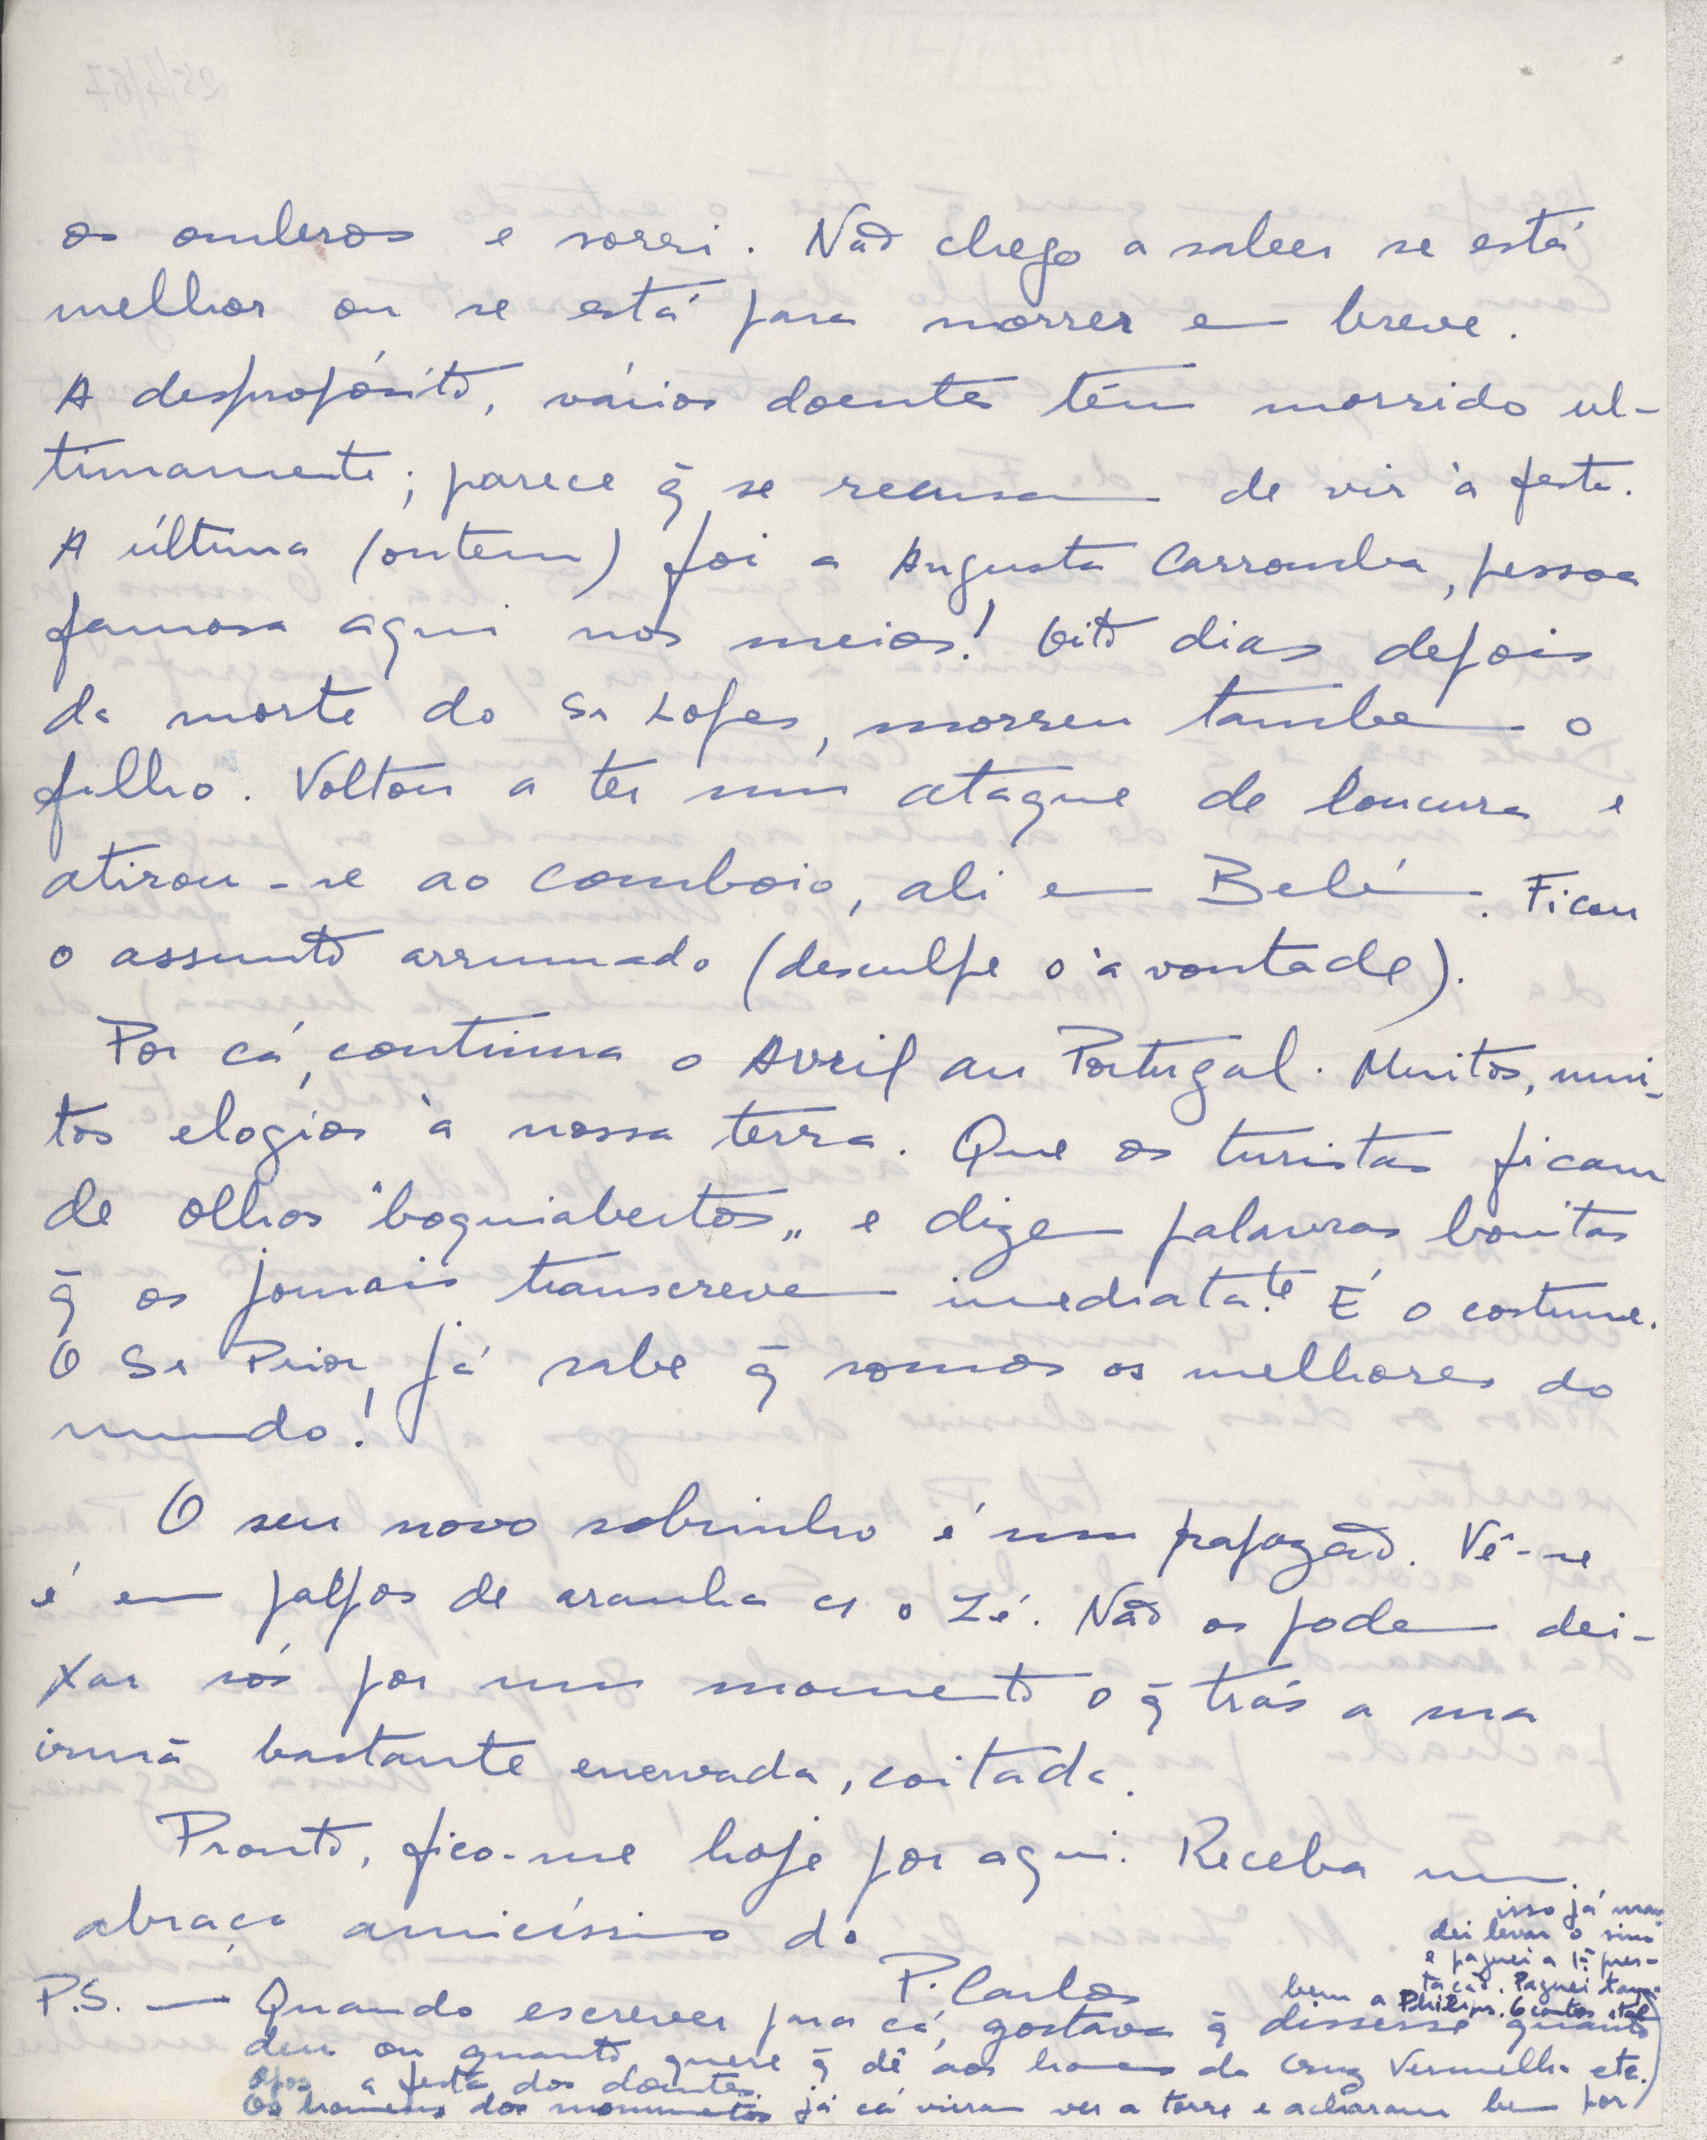 os ombros e sorri. Não chego a saber se está
melhor ou se está para morrer em breve.
A despropósito, vários doentes têm morrido ul-
timamente; parece q̃ se recusam de vir à festa.
A última (ontem) foi a Augusta Carromba, pessoa
famosa aqui nos meios! Oito dias depois
da morte do Sr Lopes, morreu também o
filho. Voltou a ter um ataque de loucura e
atirou-se ao comboio, ali em Belém. Ficou
o assunto arrumado (desculpe o à vontade).
Por cá, continua o Avril au Portugal. Muitos, mui-
tos elogios à nossa terra. Que os turistas ficam
de olhos "boquiabertos" e dizem palavras bonitas
q̃ os jornais transcrevem imediata.te É o costume.
O Sr Prior já sabe q̃ somos os melhores do
mundo!
O seu novo sobrinho é um papagão. Vê-se
é em palpos de aranha c/ o Zé. Não os podem dei-
xar sós por um momento o q̃ trás a sua
irmã bastante enervada, coitada.
Pronto, fico-me hoje por aqui. Receba um
abraço amicíssimo do
P. Carlos
P.S. — Quando escrever para cá, gostava q̃ dissesse quanto
deu ou quanto quere q̃ dê aos homens da Cruz Vermelha etc.
após a festa dos doentes.
Os homens dos monumentos já cá vieram ver a torre e acharam bem por
isso já man-
dei levar o sino
e paguei a 1ª pres-
tação. Paguei tam-
bem a Philips. 6 contos e tal